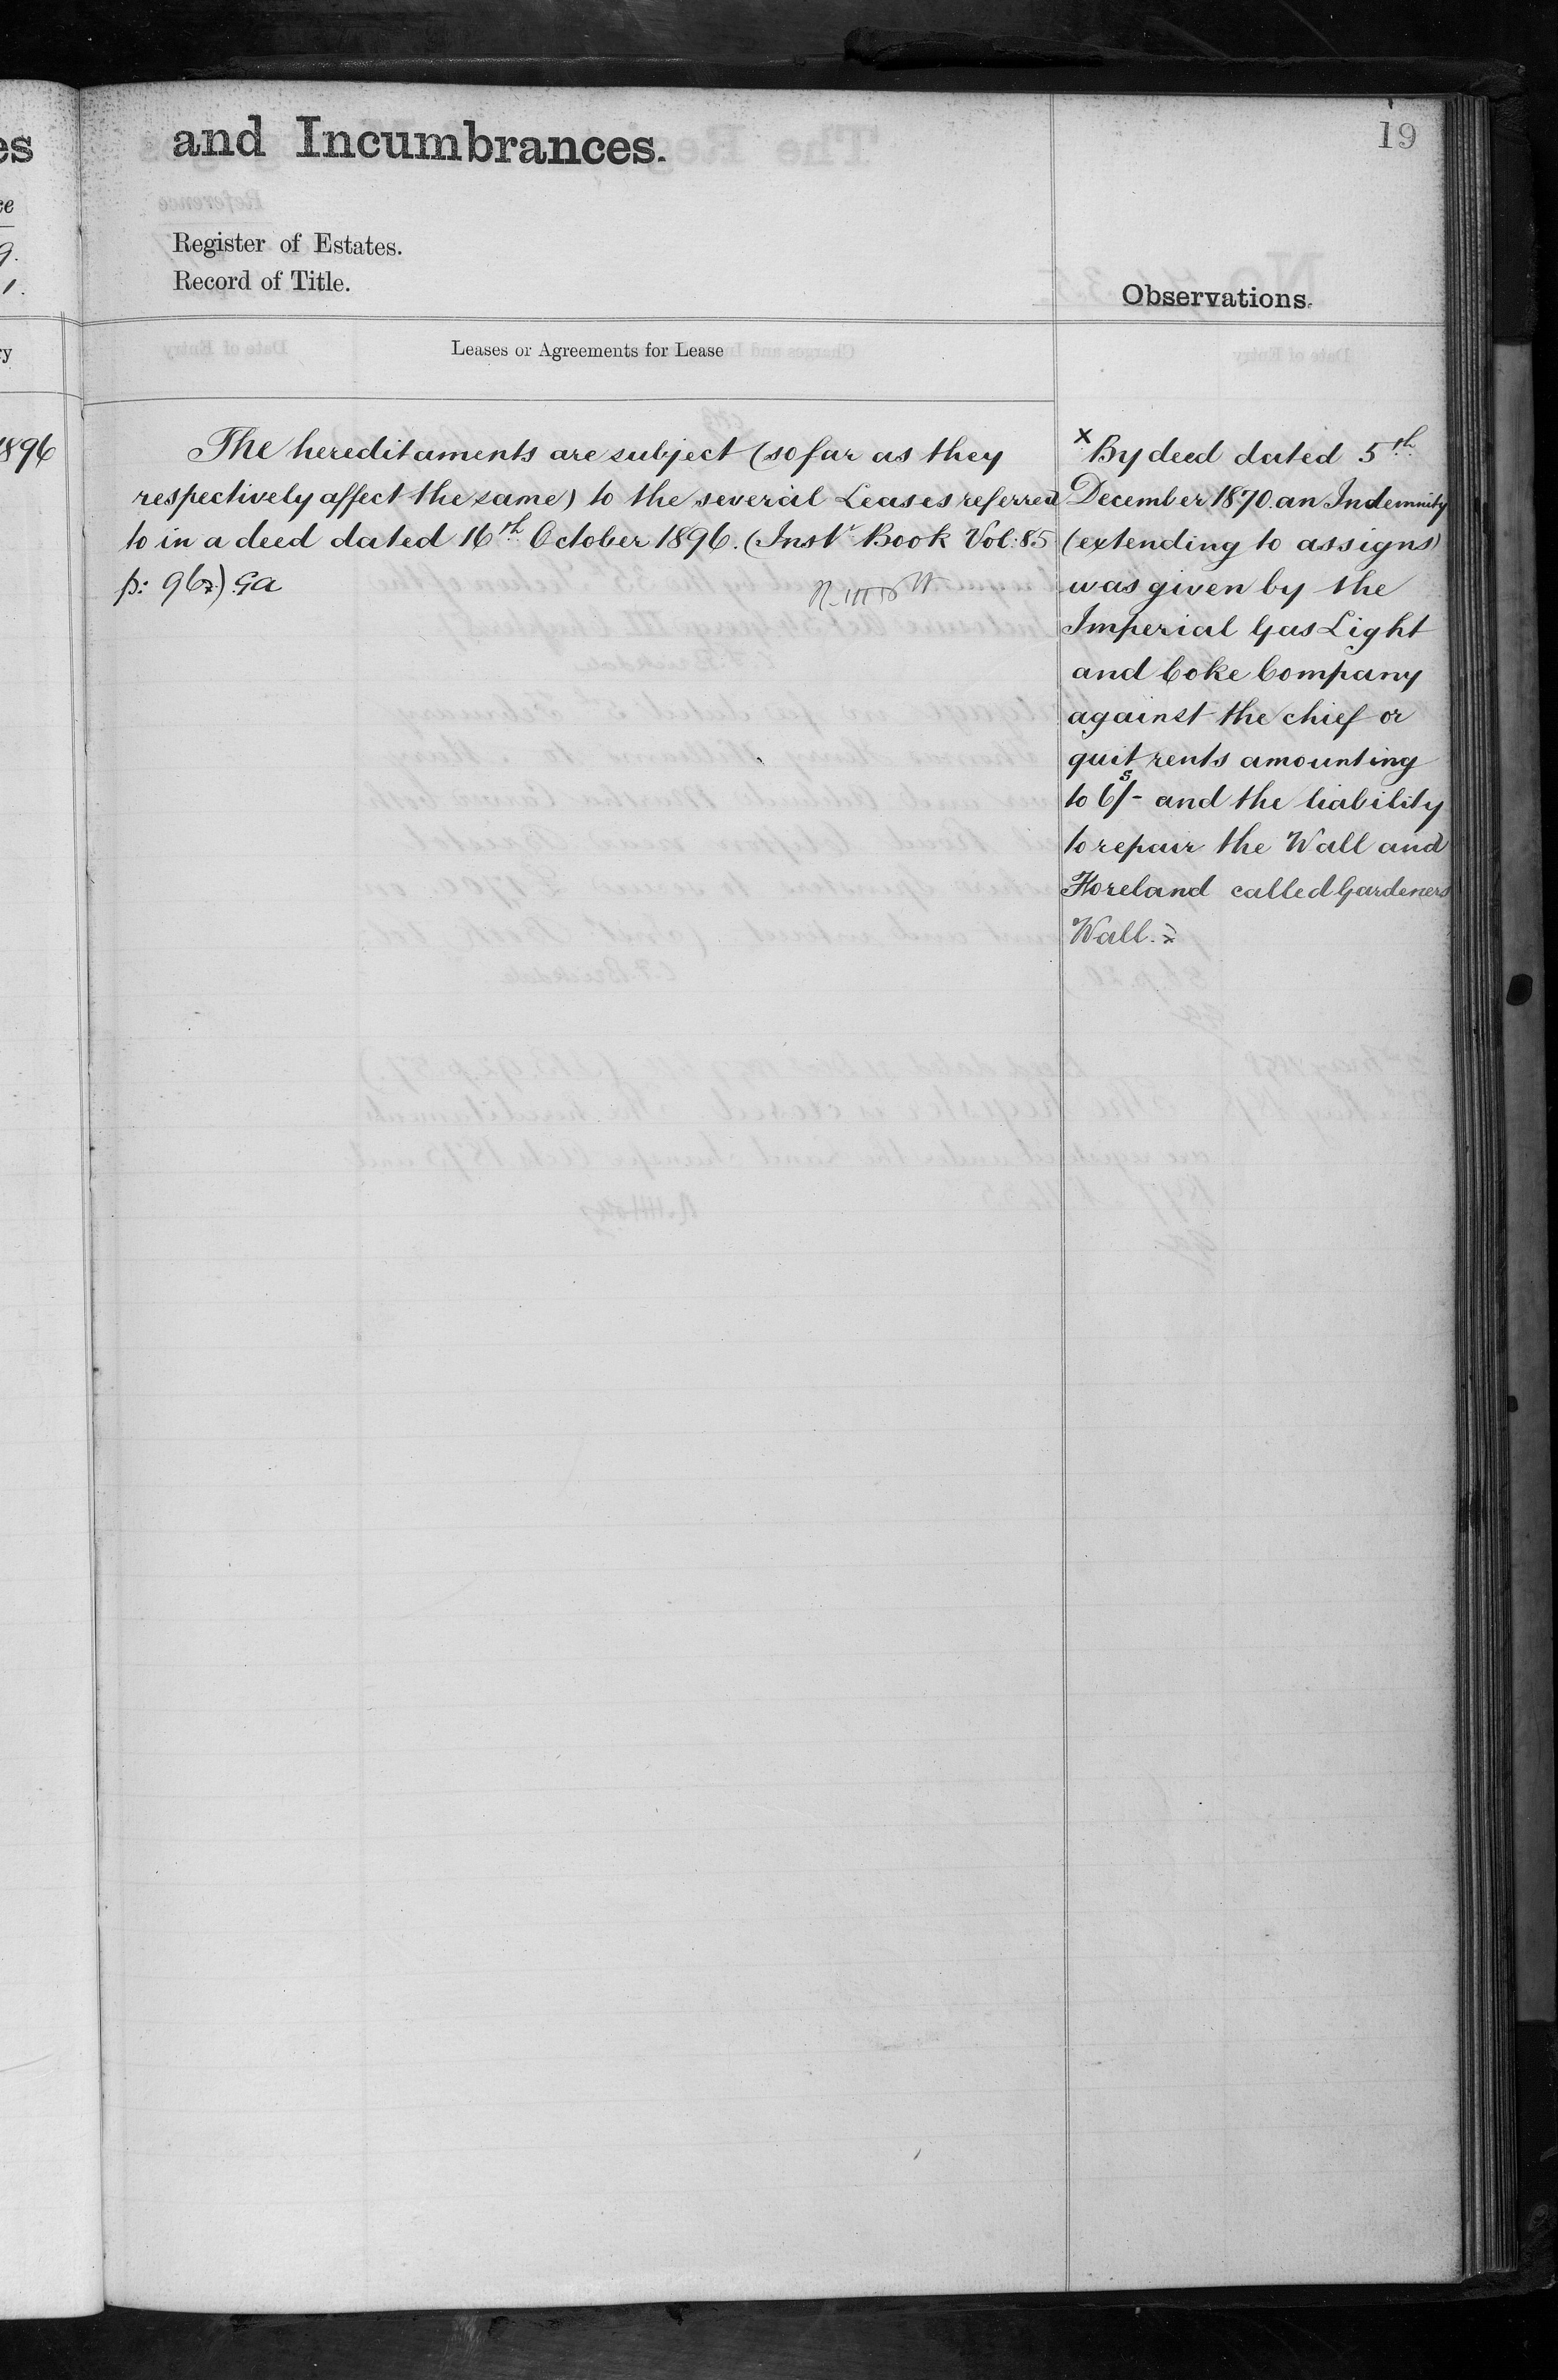 and Incumbrances.
19
Register of Estates.
Record of Title.
Observations.
Leases or Agreements for Lease
The hereditaments are subject (so far as they
respectively affect the same) to the several Leases referred
to in a deed dated 16th October 1896. (Instt Book Vol: 85
p: 96) Ga
x By deed dated 5th
December 1870. an Indemnity
(extending to assigns)
was given by the
Imperial Gas Light
and Coke Company
against the chief or
quit rents amounting
to 6s/- and the liability
to repair the Wall and
Foreland called Gardeners
Wall. x
es
ce
9.
1.
ry
1896